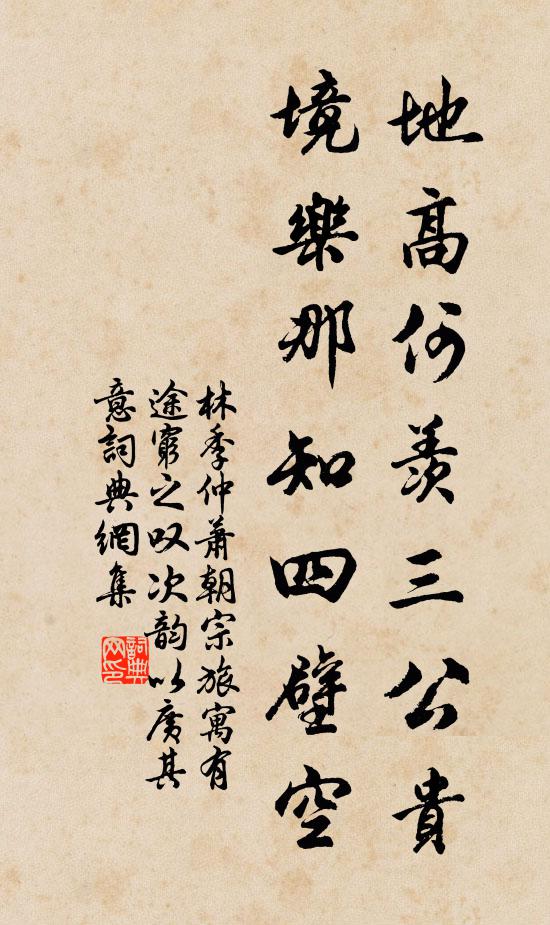 地高何羨三公貴
境樂那知四壁空
林季仲蕭朝宗旅寓有
途窮之叹次韵以廣其
意詞典網集
詞典
网印